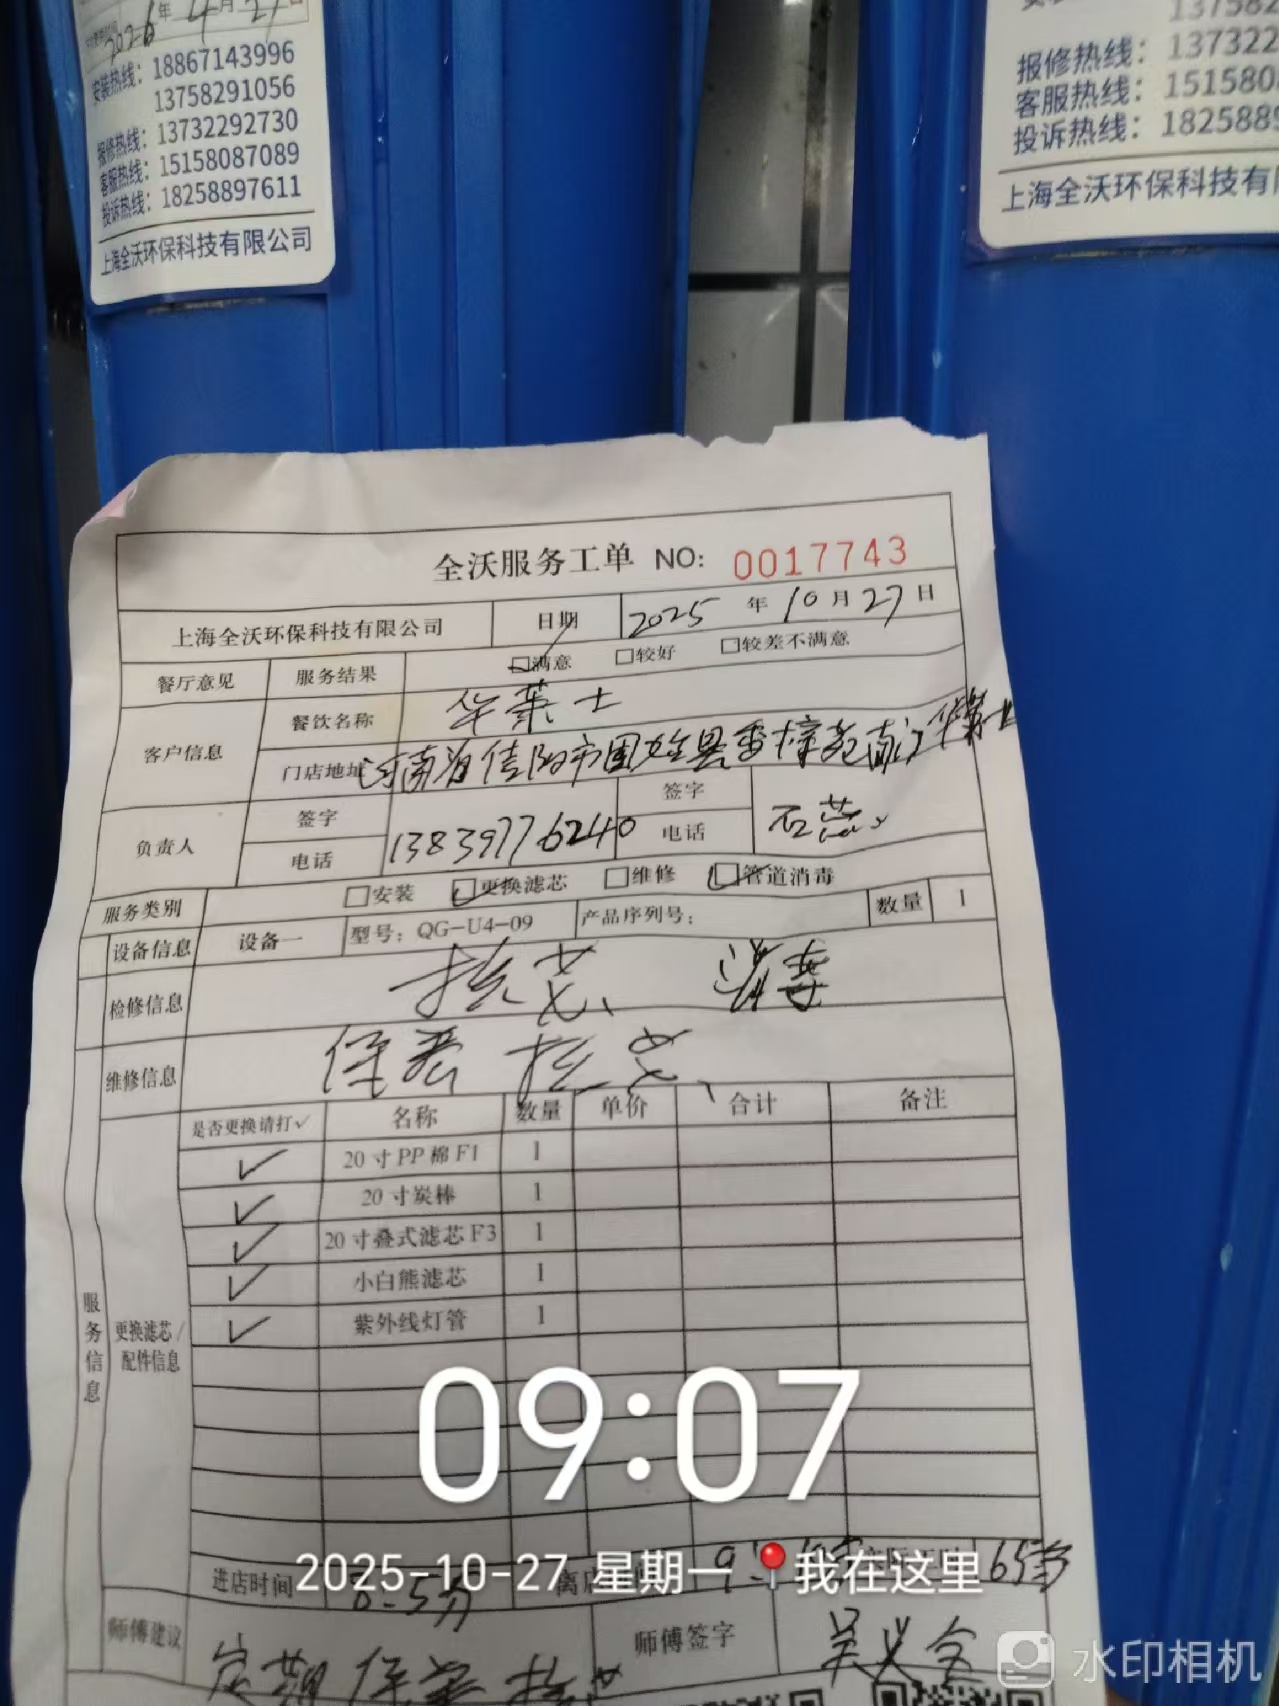 2026年4月27日
安装热线：18867143996
13758291056
报修热线：13732292730
客服热线：15158087089
投诉热线：18258897611
上海全沃环保科技有限公司
报修热线：
客服热线：
投诉热线：
上海全沃环保科技有
全沃服务工单 NO: 0017743
上海全沃环保科技有限公司 日期 2025年10月27日
餐厅意见 服务结果 满意 较好 较差不满意
客户信息 餐饮名称 华莱士
门店地址 河南省信阳市固始县香樟苑南门华莱士
负责人 签字 签字
电话 13839776240 电话
服务类别 安装 更换滤芯 维修 管道消毒
设备信息 设备一 型号：QG-U4-09 产品序列号： 数量 1
检修信息 换芯 消毒
维修信息 保养 换芯
服务信息 更换滤芯/配件信息
是否更换请打✓ 名称 数量 单价 合计 备注
✓ 20寸PP棉F1 1
✓ 20寸炭棒 1
✓ 20寸叠式滤芯F3 1
✓ 小白熊滤芯 1
✓ 紫外线灯管 1
09:07
2025-10-27 星期一 我在这里
进店时间 8:5分 65分
师傅建议 定期保养换芯 师傅签字 吴义全
水印相机